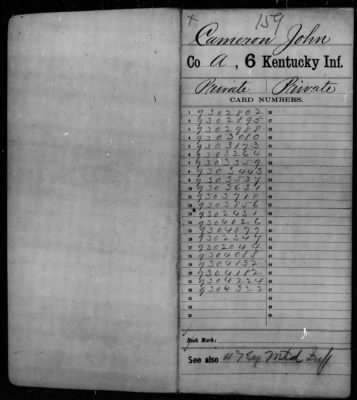 159
Cameron John
Co A, 6 Kentucky Inf.
Private Private
CARD NUMBERS.
1 9302802
2 9302895
3 9302988
4 9303080
5 9303173
6 9303264
7 9303359
8 9303443
9 9303537
10 9303631
11 9303718
12 9303856
13 9302431
14 9304026
15 9304077
16 9302347
17 9302044
18 9304088
19 9304132
20 9304182
21 9304224
22 9304322
Book Mark:
See also 4 Ky Mtd Inf